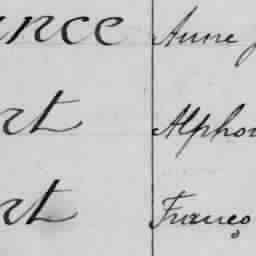 ance Anne
rt Alphon
rt Franço